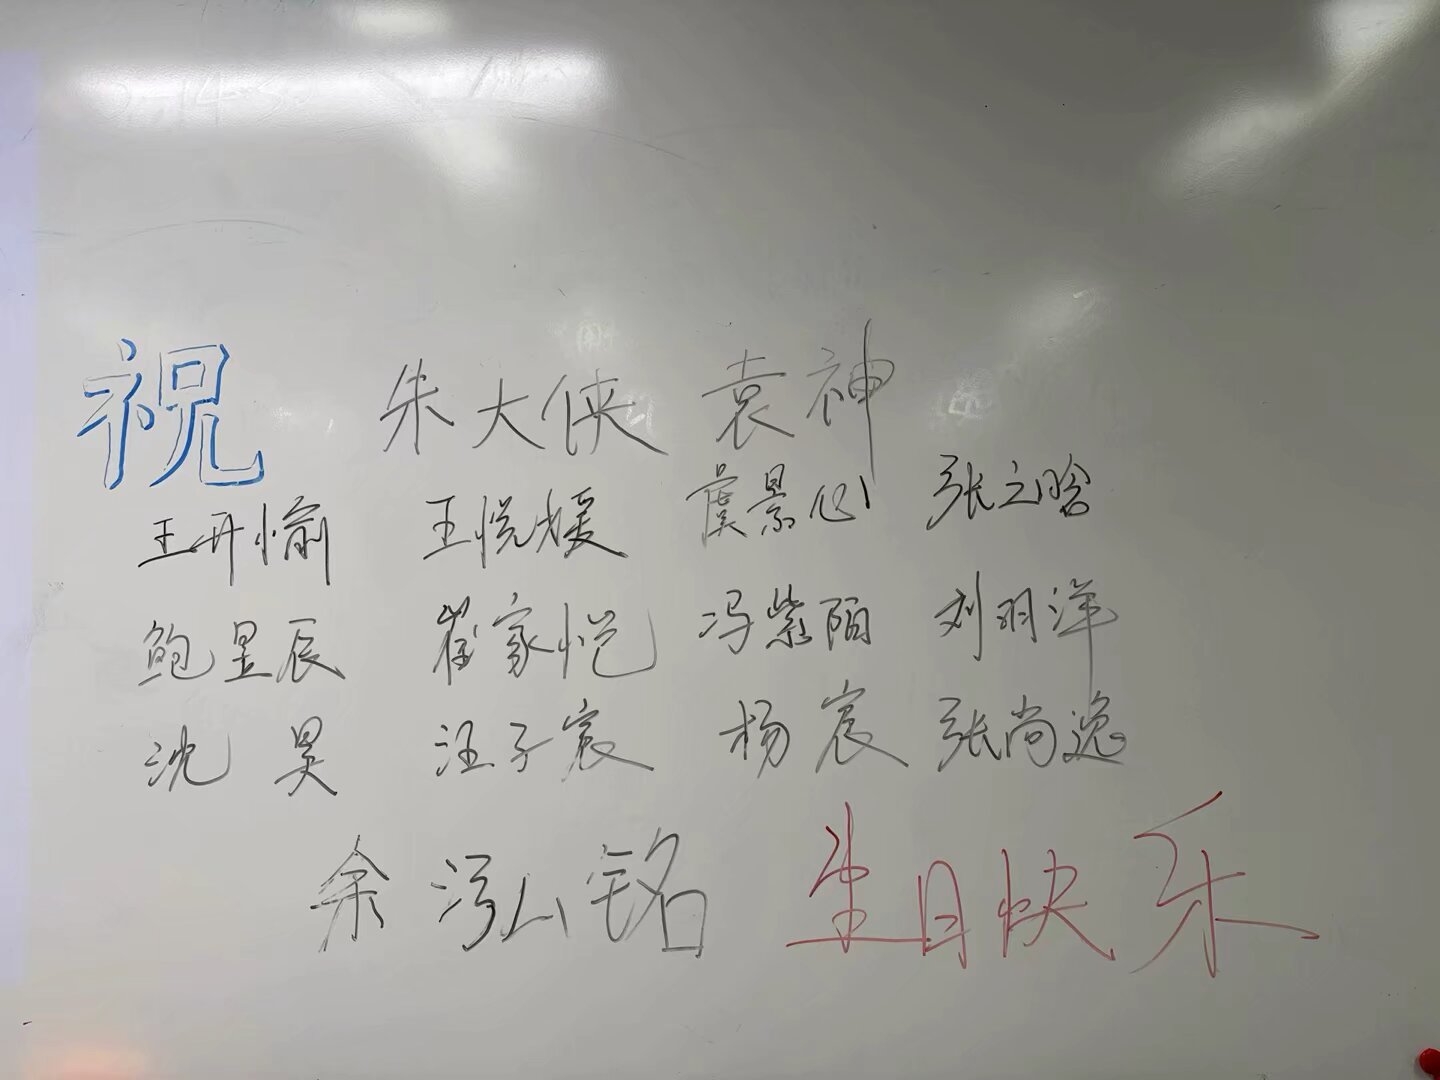 祝 朱大侠 袁神
王开愉 王悦媛 虞景心 张之晗
鲍星辰 崔家恺 冯紫陌 刘羽洋
沈昊 汪子宸 杨宸 张尚逸
余泓铭 生日快乐